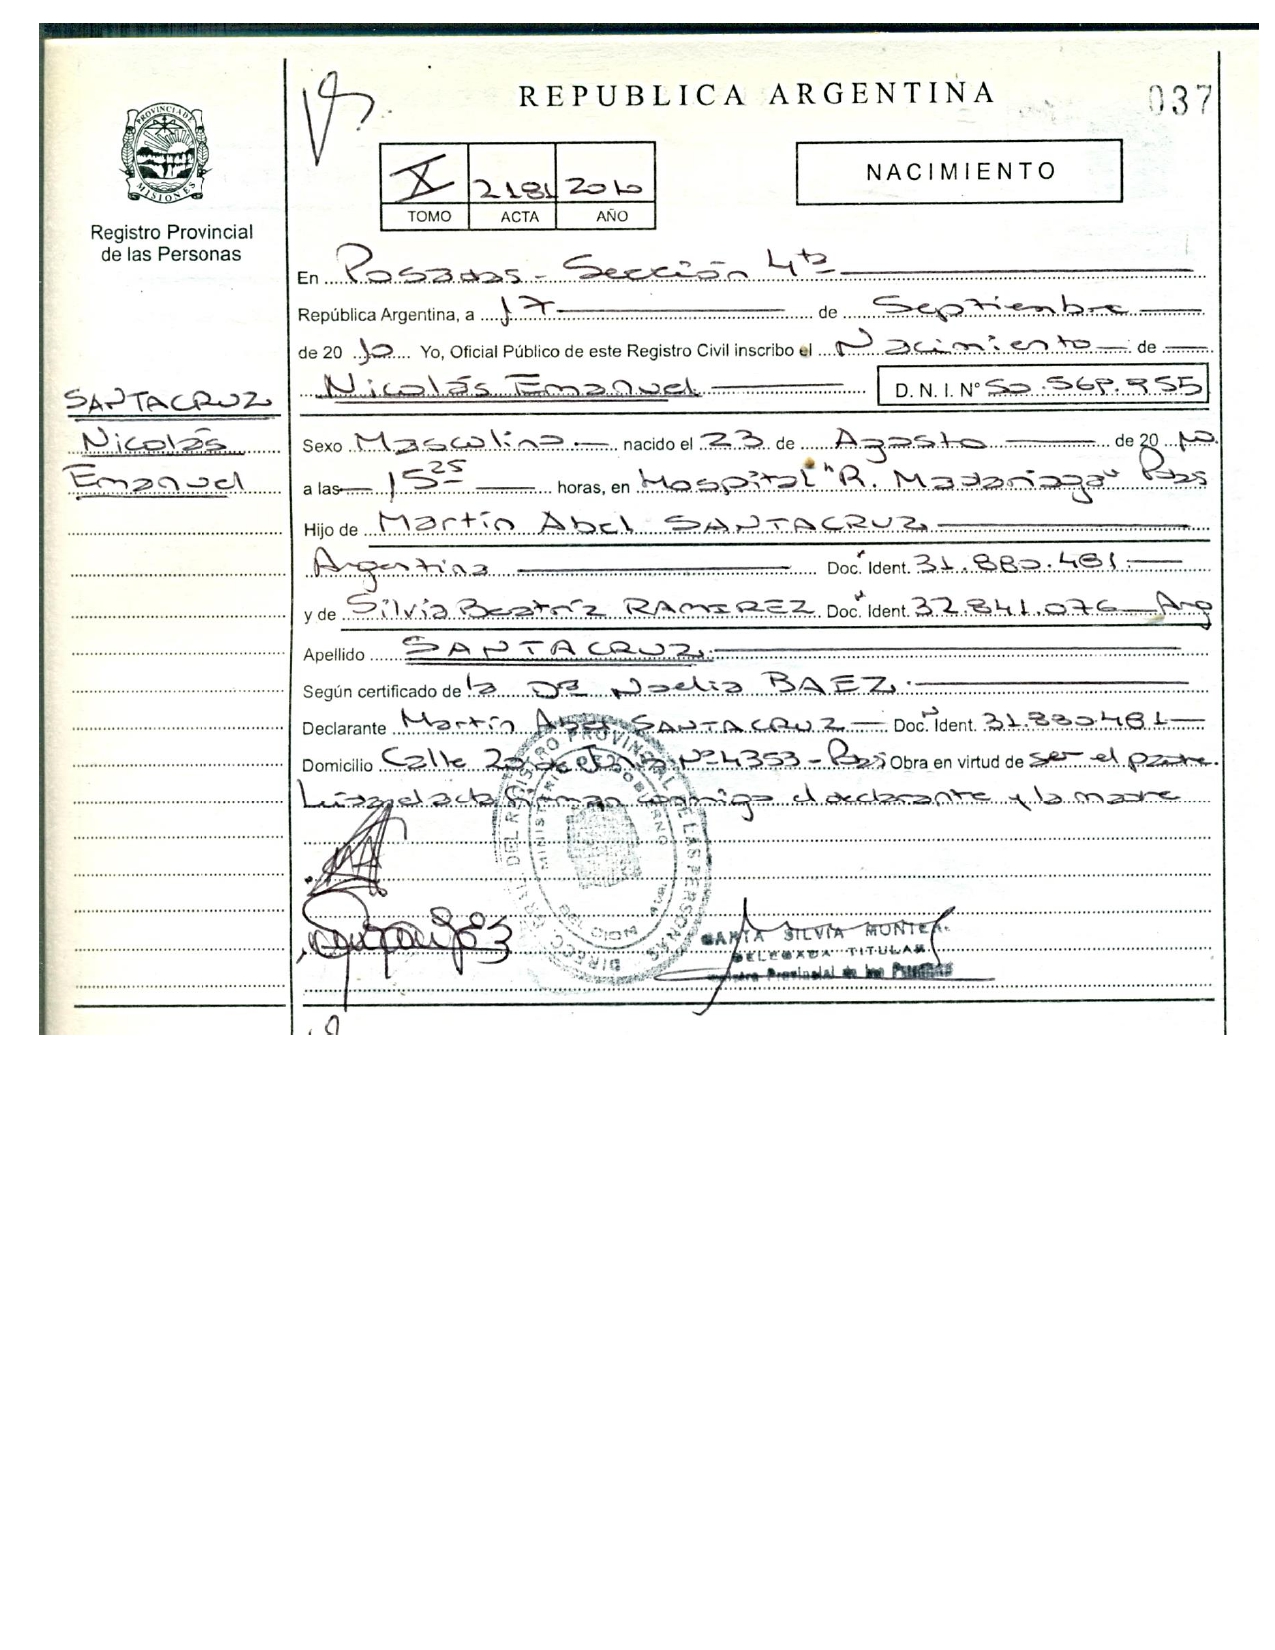 REPUBLICA ARGENTINA
037
PROVINCIA DE MISIONES
Registro Provincial
de las Personas
X 2181 2010
TOMO ACTA AÑO
NACIMIENTO
En Posadas - Sección 4ta
República Argentina, a 17 de Septiembre
de 2010 Yo, Oficial Público de este Registro Civil inscribo el Nacimiento de
Nicolás Emanuel D. N. I. N° 50.568.955
SANTACRUZ
Nicolás
Emanuel
Sexo Masculino nacido el 23 de Agosto de 2010
a las 15 25 horas, en Hospital "R. Madariaga" Pdas
Hijo de Martín Abel SANTACRUZ
Argentina Doc. Ident. 31.880.481
y de Silvia Beatríz RAMIREZ Doc. Ident. 32.841.076 Arg
Apellido SANTACRUZ
Según certificado de la DRa Noelia BAEZ
Declarante Martín Abel SANTACRUZ Doc. Ident. 31.880.481
Domicilio Calle 20 de N° 4353 - Pdas Obra en virtud de ser el padre.
Leída el acta firman conmigo el declarante y la madre
DIRECC. GRAL. DEL REGISTRO PROVINCIAL DE LAS PERSONAS
MINISTERIO DE GOBIERNO
SILVIA
DELEGADA TITULAR
Registro Provincial de las Personas